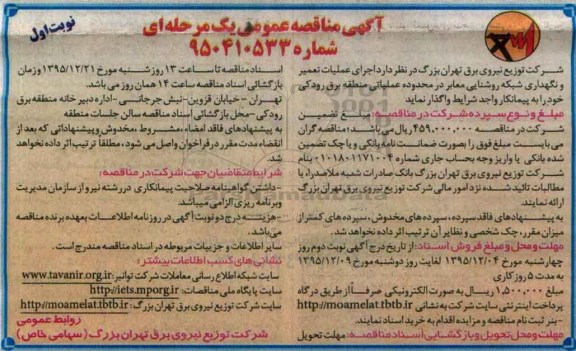 آگهی مناقصه عمومی یک مرحله‌ای
شماره ۹۵۰۴۱۰۵۳۳
نوبت اول
شرکت توزیع نیروی برق تهران بزرگ در نظر دارد اجرای عملیات تعمیر
و نگهداری شبکه روشنایی معابر در محدوده عملیاتی منطقه برق رودکی
خود را به پیمانکار واجد شرایط واگذار نماید
مبلغ و نوع سپرده شرکت در مناقصه: مبلغ تضمین
شرکت در مناقصه ۴۵۹,۰۰۰,۰۰۰ ریال می‌باشد؛ مناقصه گران
می بایست مبلغ فوق را بصورت ضمانت نامه بانکی و یا چک تضمین
شده بانکی یا واریز وجه بحساب جاری شماره ۰۱۰۱۸۰۱۱۷۱۰۰۴ بنام
شرکت توزیع نیروی برق تهران بزرگ بانک صادرات شعبه ملاصدرا، یا
مطالبات تائید شده نزد امور مالی شرکت توزیع نیروی برق تهران بزرگ
ارائه نمایند.
به پیشنهادهای فاقد سپرده، سپرده های مخدوش، سپرده های کمتر از
میزان مقرر، چک شخصی و نظایر آن ترتیب اثر داده نخواهد شد.
مهلت و محل و مبلغ فروش اسناد: از تاریخ درج آگهی نوبت دوم روز
چهارشنبه مورخ ۱۳۹۵/۱۲/۰۴ لغایت روز دوشنبه مورخ ۱۳۹۵/۱۲/۰۹
به مدت ۵ روز کاری
مبلغ ۱,۵۰۰,۰۰۰ ریال به صورت الکترونیکی صرفاً از طریق درگاه
پرداخت اینترنتی سایت شرکت به نشانی http://moamelat.tbtb.ir
- بنر ثبت نام مناقصه و مزایده اقدام به خرید اسناد نمایند.
مهلت و محل تحویل و بازگشایی اسناد مناقصه: مهلت تحویل
اسناد مناقصه تا ساعت ۱۳ روز شنبه مورخ ۱۳۹۵/۱۲/۲۱ و زمان
بازگشائی اسناد مناقصه ساعت ۱۴ همان روز می باشد.
تهران - خیابان قزوین - نبش جرجانی - اداره دبیر خانه منطقه برق
رودکی - محل بازگشائی اسناد مناقصه سالن جلسات منطقه
به پیشنهادهای فاقد امضاء، مشروط، مخدوش و پیشنهاداتی که بعد از
انقضاء مدت مقرر در فراخوان واصل می شود، مطلقاً ترتیب اثر داده نخواهد
شد.
شرایط متقاضیان جهت شرکت در مناقصه:
- داشتن گواهینامه صلاحیت پیمانکاری در رشته نیرو از سازمان مدیریت
و برنامه ریزی الزامی میباشد.
- هزینه درج دو نوبت آگهی در روزنامه اطلاعات بعهده برنده مناقصه
می‌باشد.
سایر اطلاعات و جزییات مربوطه در اسناد مناقصه مندرج است.
نشانی های کسب اطلاعات بیشتر:
سایت شبکه اطلاع رسانی معاملات شرکت توانیر: www.tavanir.org.ir
سایت پایگاه ملی مناقصات: http://iets.mporg.ir
سایت شرکت توزیع نیروی برق تهران بزرگ: http://moamelat.tbtb.ir
روابط عمومی
شرکت توزیع نیروی برق تهران بزرگ (سهامی خاص)